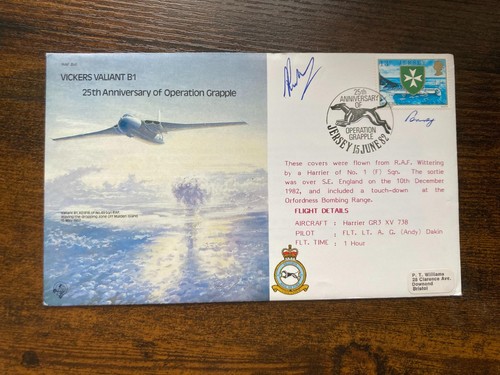 VICKERS VALIANT B1
25th Anniversary of Operation Grapple
25th
ANNIVERSARY
OF
OPERATION
GRAPPLE
JERSEY 15 JUNE 82
These covers were flown from R.A.F. Wittering
by a Harrier of No. 1 (F) Sqn. The sortie
was over S.E. England on the 10th December
1982, and included a touch-down at the
Orfordness Bombing Range.
FLIGHT DETAILS
AIRCRAFT : Harrier GR3 XV 738
PILOT : FLT. LT. A. G. (Andy) Dakin
FLT. TIME : 1 Hour
P. T. Williams
28 Clarence Ave.
Downend
Bristol